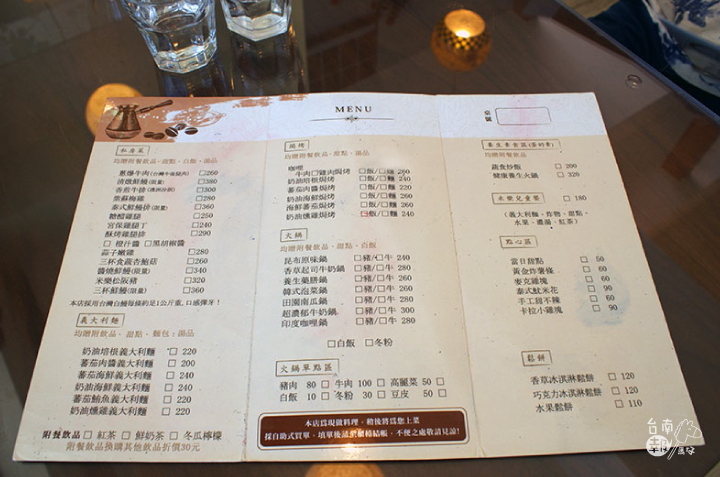 MENU
桌號
私房菜
均贈附餐飲品、甜點、白飯、湯品
蔥爆牛肉(台灣牛後腿肉) □260
清燉鮮鰻(限量) □380
香煎牛排
紫蘇梅雞 □280
泰式鮮鰻排(限量) □360
糖醋雞腿 □250
宮保雞腿丁 □240
酥烤雞腿排 □290
□ 橙汁醬 □黑胡椒醬
蒜子嫩雞 □280
三杯食蔬杏鮑菇 □260
醬燒鮮鰻(限量) □340
米樂松阪豬 □320
三杯鮮鰻(限量) □360
本店採用台灣白鰻每條約足1公斤重，口感彈牙！
義大利麵
均贈附飲品、甜點、麵包、湯品
奶油培根義大利麵 □ 220
蕃茄肉醬義大利麵 □ 200
蕃茄海鮮義大利麵 □ 240
奶油海鮮義大利麵 □ 240
蕃茄鮪魚義大利麵 □ 220
奶油燻雞義大利麵 □ 220
附餐飲品 □ 紅茶 □ 鮮奶茶 □ 冬瓜檸檬
附餐飲品換購其他飲品折價30元
焗烤
均贈附餐飲品、甜點、湯品
咖哩
牛肉□雞肉焗烤 □飯/□麵 240
奶油培根焗烤 □飯/□麵 240
蕃茄肉醬焗烤 □飯/□麵 200
奶油海鮮焗烤 □飯/□麵 260
海鮮蕃茄焗烤 □飯/□麵 260
奶油燻雞焗烤 □飯/□麵 240
火鍋
均贈附餐飲品、甜點、白飯
昆布原味鍋 □豬/□牛 240
香草起司牛奶鍋 □豬/□牛 260
養生藥膳鍋 □豬/□牛 260
韓式泡菜鍋 □豬/□牛 260
田園南瓜鍋 □豬/□牛 280
超濃郁牛奶鍋 □豬/□牛 300
印度咖哩鍋 □豬/□牛 280
□白飯 □冬粉
火鍋單點區
豬肉 80 □ 牛肉 100 □ 高麗菜 50 □
白飯 10 □ 冬粉 30 □ 豆皮 50 □
本店為現做料理，稍後將為您上菜
採自助式買單，填單後請至櫃檯結帳，不便之處敬請見諒!
養生素食區(蛋奶素)
均贈附餐飲品
蔬食炒飯 □ 200
健康養生火鍋 □ 320
米樂兒童餐 □ 180
(義大利麵、炸物、甜點、
水果、濃湯、紅茶)
點心區
當日甜點 □ 50
黃金炸薯條 □ 60
麥克雞塊 □ 60
泰式魷米花 □ 90
手工甜不辣 □ 60
卡拉小雞塊 □ 60
鬆餅
香草冰淇淋鬆餅 □ 120
巧克力冰淇淋鬆餅 □ 120
水果鬆餅 □ 110
台南